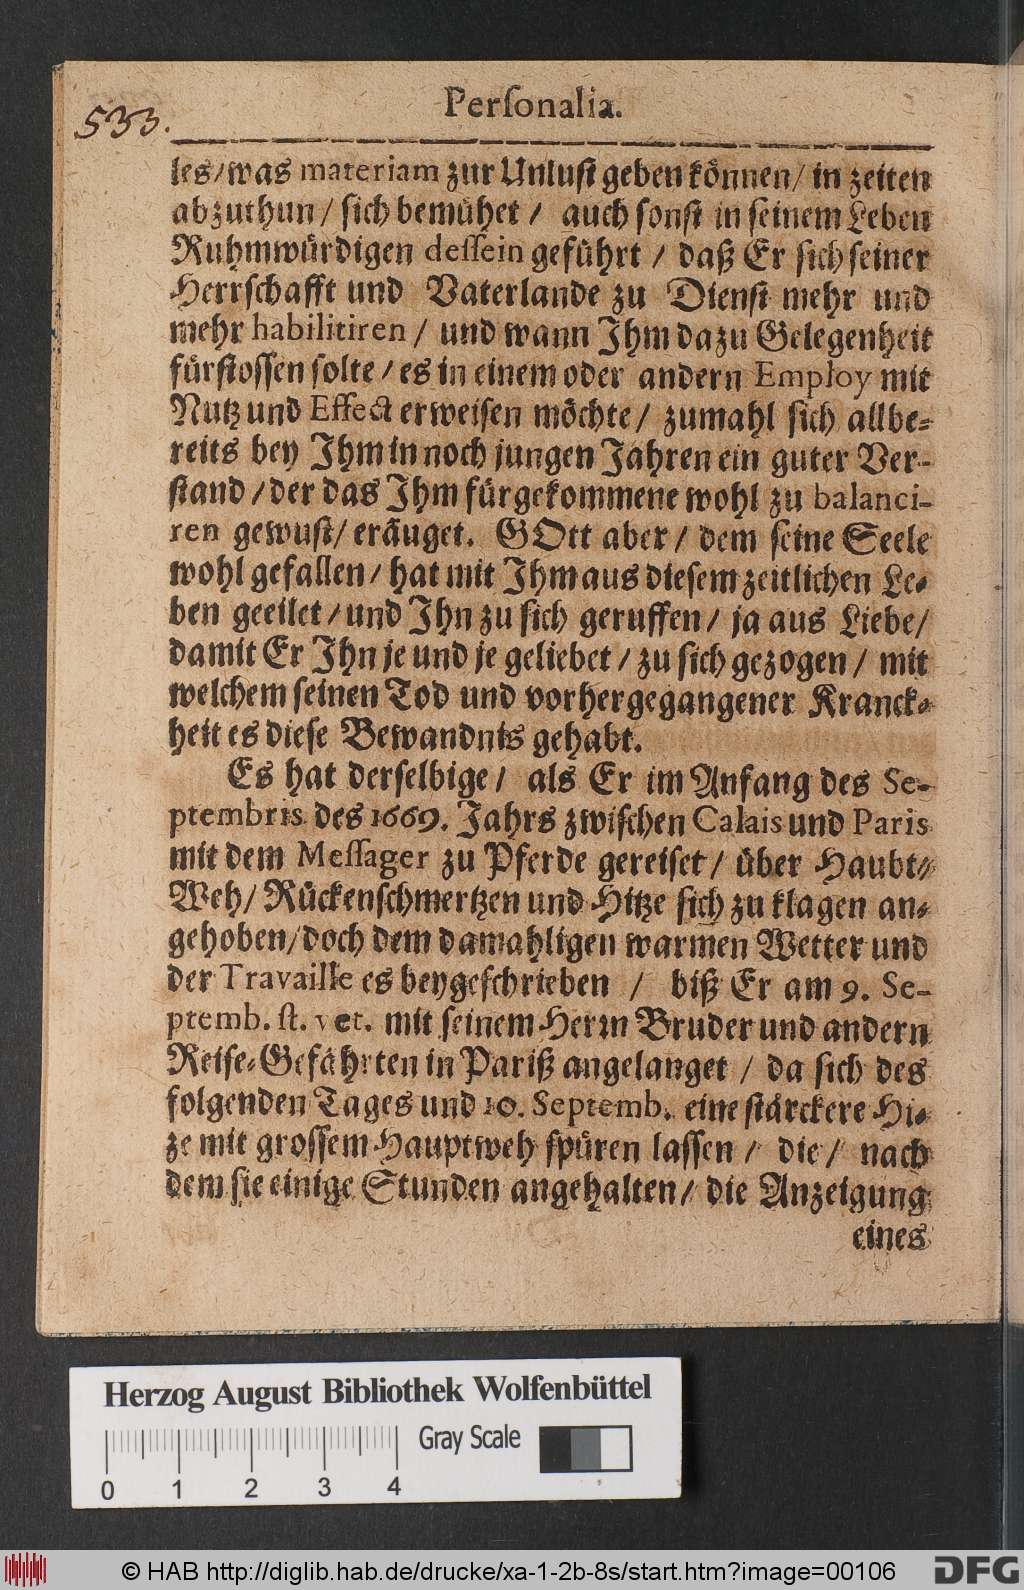 Perſonalia.
533.
les/was materiam zur Unluſt geben können/ in zeiten
abzuthun/ ſich bemühet/ auch ſonſt in ſeinem Leben
Ruhmwürdigen deſſein geführt/ daß Er ſich ſeiner
Herrſchafft und Vaterlande zu Dienſt mehr und
mehr habilitiren/ und wann Ihm dazu Gelegenheit
fürſtoſſen ſolte/ es in einem oder andern Employ mit
Nutz und Effect erweiſen möchte/ zumahl ſich allbe-
reits bey Ihm in noch jungen Jahren ein guter Ver-
ſtand/ der das Ihm fürgekommene wohl zu balanci-
ren gewuſt/ eräuget. GOtt aber/ dem ſeine Seele
wohl gefallen/ hat mit Ihm aus dieſem zeitlichen Le-
ben geeilet/ und Ihn zu ſich geruffen/ ja aus Liebe/
damit Er Ihn je und je geliebet/ zu ſich gezogen/ mit
welchem ſeinen Tod und vorhergegangener Kranck-
heit es dieſe Bewandnis gehabt.
Es hat derſelbige/ als Er im Anfang des Se-
ptembris des 1669. Jahrs zwiſchen Calais und Paris
mit dem Meſſager zu Pferde gereiſet/ über Haubt-
Weh/ Rückenſchmertzen und Hitze ſich zu klagen an-
gehoben/ doch dem damahligen warmen Wetter und
der Travaille es beygeſchrieben / biß Er am 9. Se-
ptemb. ſt. vet. mit ſeinem Herrn Bruder und andern
Reiſe-Gefährten in Pariß angelanget / da ſich des
folgenden Tages und 10. Septemb. eine ſtärckere Hi-
ze mit groſſem Hauptweh ſpüren laſſen / die/ nach
dem ſie einige Stunden angehalten/ die Anzeigung
eines
Herzog August Bibliothek Wolfenbüttel
Gray Scale
0 1 2 3 4
© HAB http://diglib.hab.de/drucke/xa-1-2b-8s/start.htm?image=00106
DFG